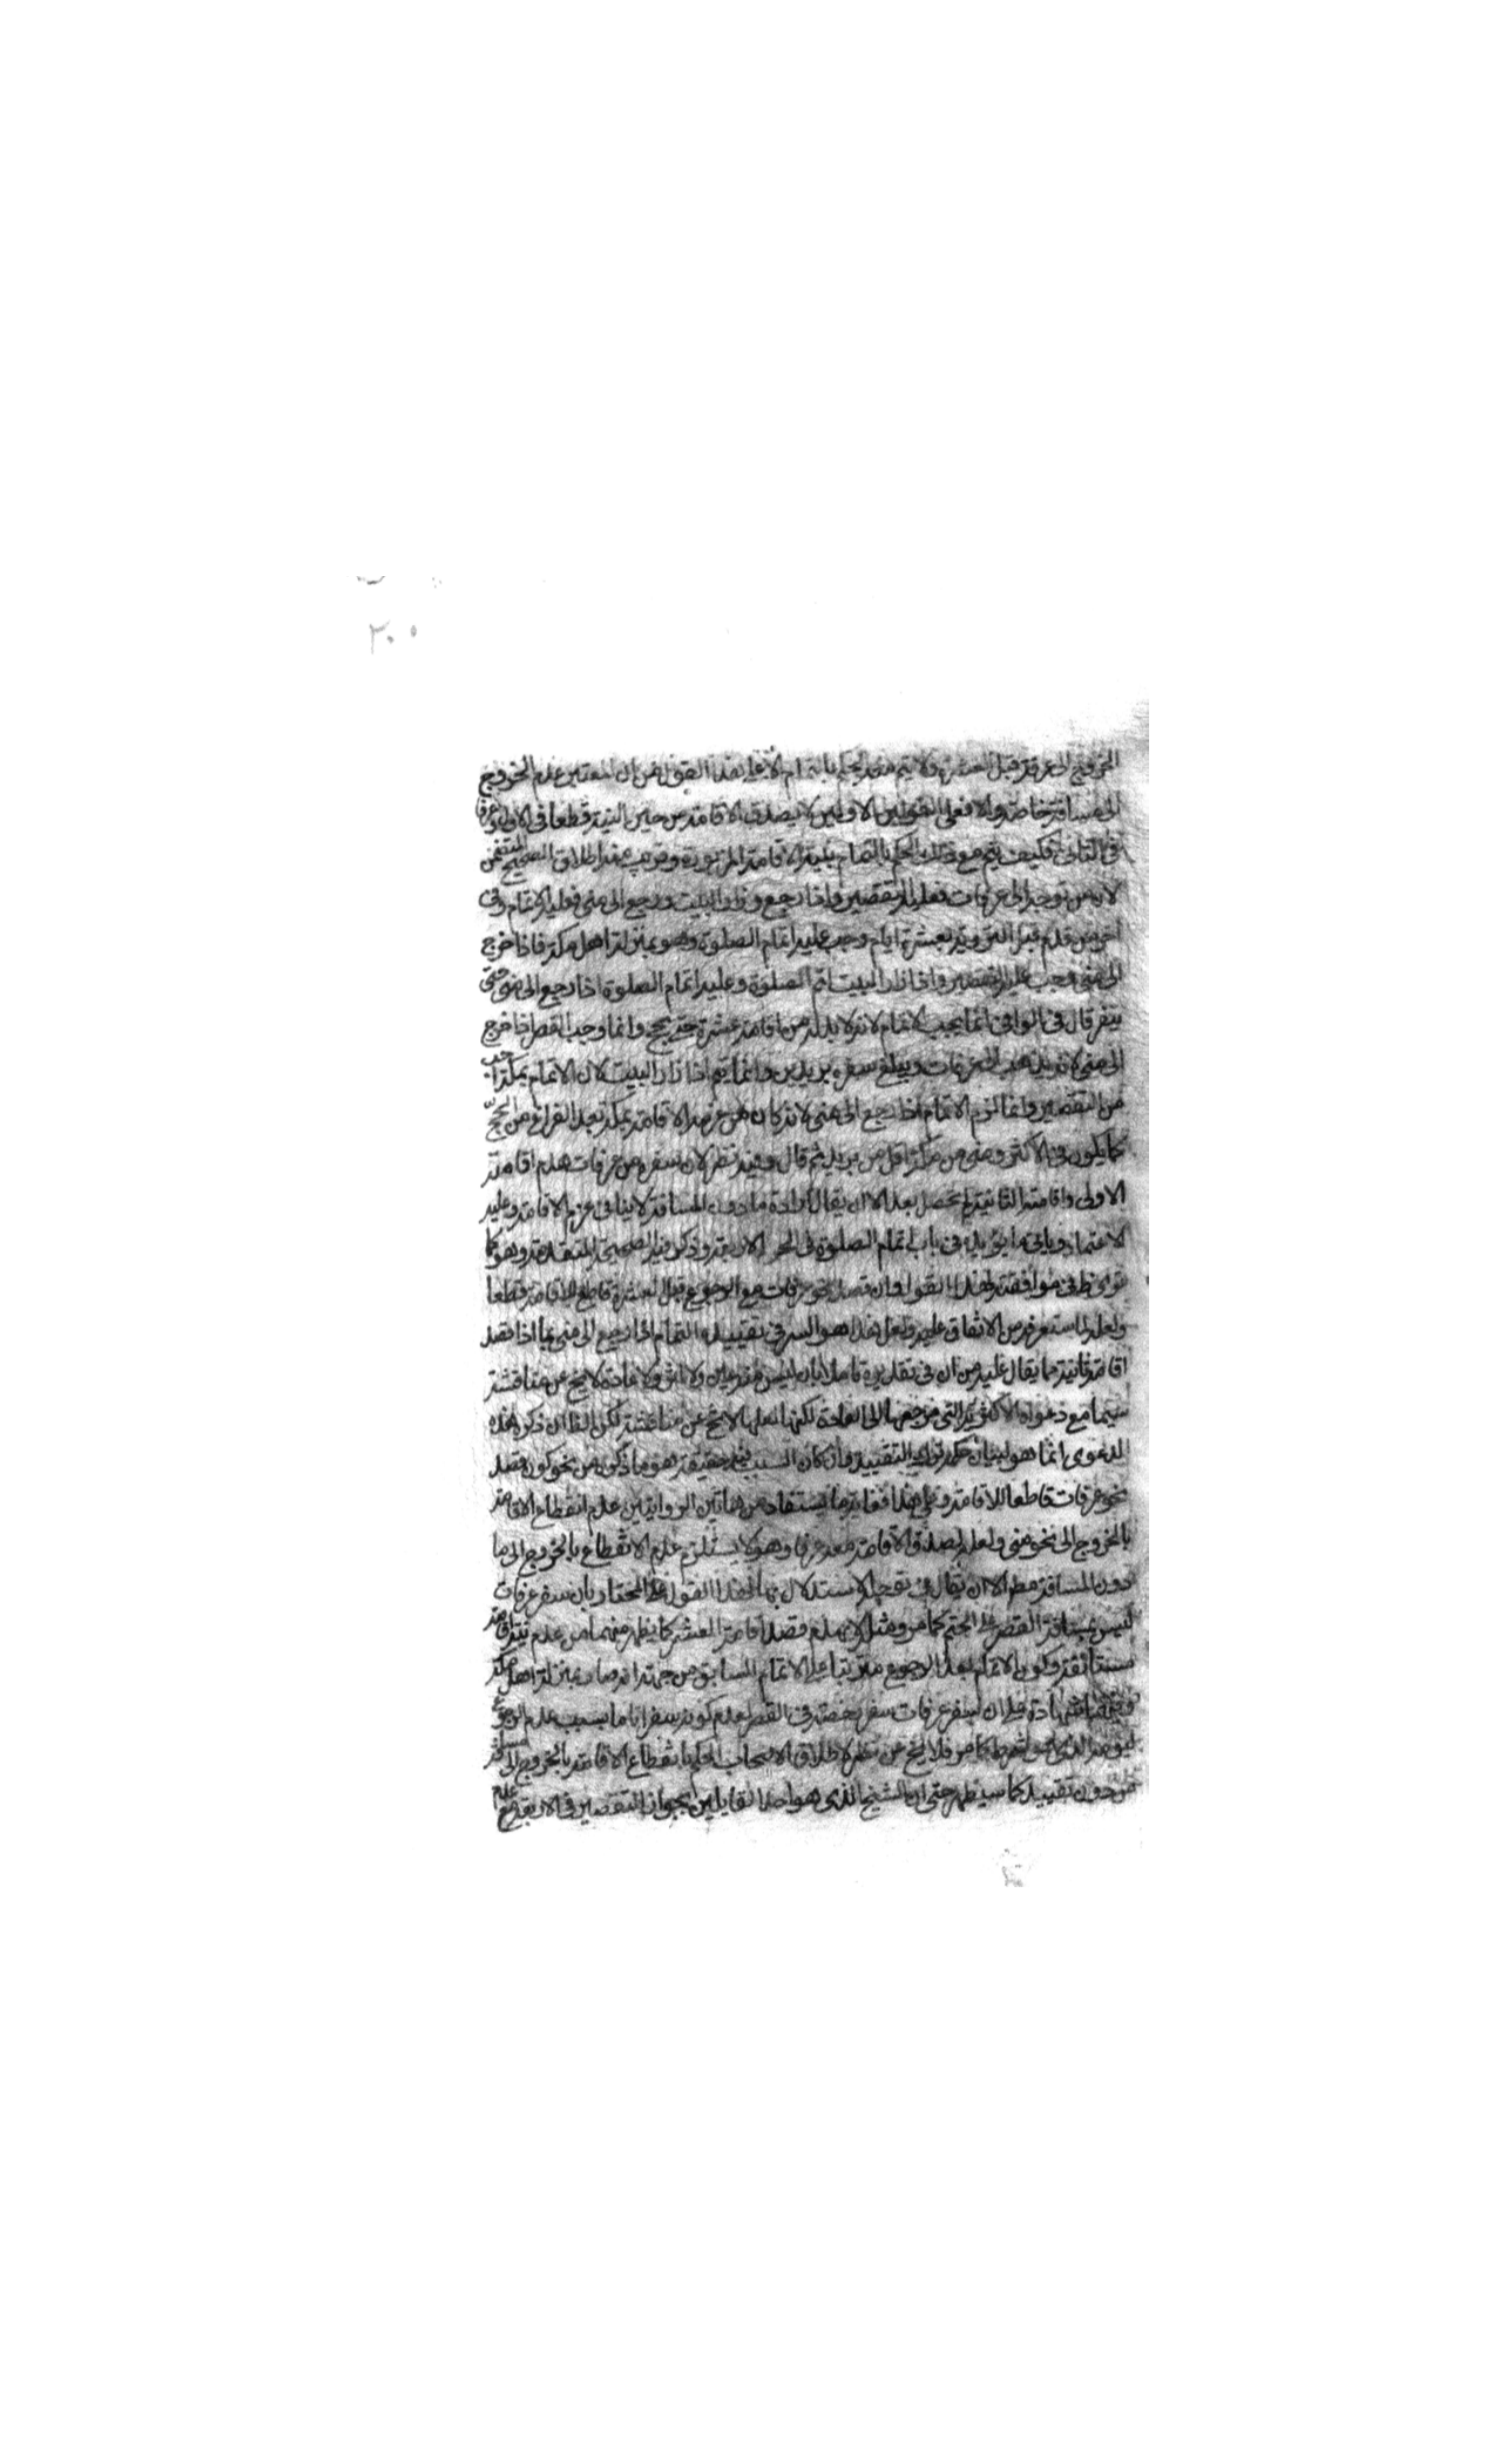 ٢٠٠
الخروج الى عرفة قبل العشرة ولا يتم معه الحكم بالتمام الا على هذا القول من ان المعتبر عدم الخروج
الى مسافة خاصة والا فعلى القولين الاولين لا يصدق الاقامة من حين النية قطعا في الاول وعرفا
في الثاني فكيف يتم مع ذلك الحكم بالتمام بنية الاقامة المزبورة وقريب منه اطلاق الصحيح المتضمن
لان من توجه الى عرفات فعليه التقصير واذا رجع وزار البيت ورجع الى منى فعليه الاتمام وفي
اخر من قدم قبل التروية بعشرة ايام وجب عليه اتمام الصلوة وهو بمنزلة اهل مكة فاذا خرج
الى منى وجب عليه التقصير واذا زار البيت اتم الصلوة وعليه اتمام الصلوة اذا رجع الى منى حتى
ينفر قال في الوافي انما يجب الاتمام لانه لا بد له من اقامة عشرة حتى يحج وانما وجب القصر اذا خرج
الى منى لانه يذهب الى عرفات ويبلغ سفره بريدين وانما يتم اذا زار البيت لان الاتمام بمكة احب
من التقصير وانما لزم الاتمام اذا رجع الى منى لانه كان من عزمه الاقامة بمكة بعد الفراغ من الحج
كما يكون في الاكثر ومنى من مكة اقل من بريد ثم قال وفيه نظر لان سفره من عرفات هدم اقامته
الاولى واقامته الثانية لم تحصل بعد الا ان يقال ارادة ما دون المسافة لا ينافي عزم الاقامة وعليه
الاعتماد وياتي ما يؤيده في باب اتمام الصلوة في الحرم الاربعة وذكر فيه الصحيحة المتقدمة وهو كما
ترى ظ في موافقته لهذا القول وان قصد نحو عرفات مع الرجوع قبل العشرة قاطع للاقامة قطعا
ولعله لما ستعرفه من الاتفاق عليه ولعل هذا هو السر في تقييده التمام اذا رجع الى منى بما اذا قصد
اقامة ثانية مما يقال عليه من ان في تقديره تاملا بان ليس منه عين ولا اثر ولا عادة لا يخ عن مناقشة
سيما مع دعواه الاكثرية التي مرجعها الى العادة لكنها لعلها لا تخ عن مناقشة لكن الظ ان ذكره هذه
الدعوى انما هو لبيان التقييد وان كان السبب فيه حقيقة هو ما ذكره من نحو كون قصد
نحو عرفات قاطعا للاقامة وعلى هذا فغاية ما يستفاد من هاتين الروايتين عدم انقطاع الاقامة
بالخروج الى نحو منى ولعله لصدق الاقامة معه عرفا وهو لا يستلزم عدم الانقطاع بالخروج الى ما
دون المسافة مطلقا الا ان يقال في توجه الاستدلال بهما لهذا القول على المختار بان سفر عرفات
ليس بمسافة القصر على الحتم كما مر ومثله لا يهدم قصد اقامة العشر كما يظهر منهما من عدم نية اقامة
مستانفة وكون الاتمام بعد الرجوع مترتبا على الاتمام السابق من جهة انه صار بمنزلة اهل مكة
شهادة على ان لسفر عرفات سفر رخصة في القصر لعدم كونه سفرا تاما بسبب عدم الرجوع
ليومه الذي هو شرط كما مر فلا يخ عن نظر لاطلاق الاصحاب الحكم بانقطاع الاقامة بالخروج الى مسافة
من دون تقييد كما سيظهر حتى ان الشيخ الذي هو احد القايلين بجواز التقصير في الاربعة مع عدم